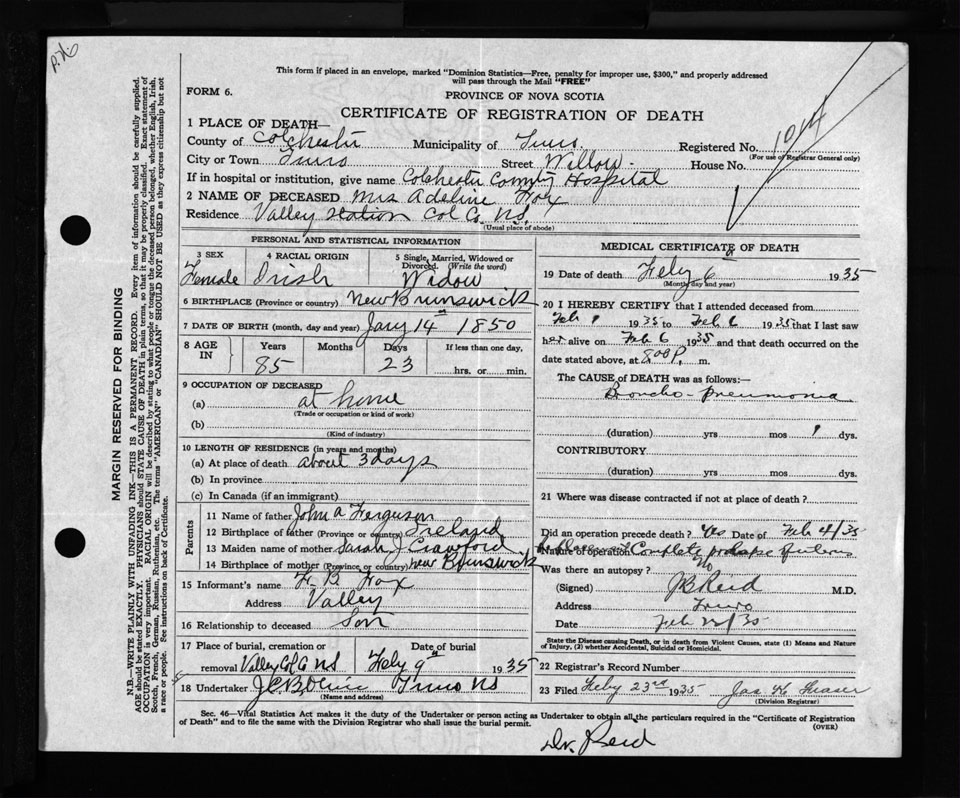 This form if placed in an envelope, marked "Dominion Statistics—Free, penalty for improper use, $300," and properly addressed
will pass through the Mail "FREE"
FORM 6.
PROVINCE OF NOVA SCOTIA
CERTIFICATE OF REGISTRATION OF DEATH
1 PLACE OF DEATH—
County of Colchester Municipality of Truro. Registered No. 1014
(For use of Registrar General only)
City or Town Truro Street Willow - House No.
If in hospital or institution, give name Colchester County Hospital
2 NAME OF DECEASED Mrs Adeline Fox
Residence Valley Station Col Co. NS.
(Usual place of abode)
PERSONAL AND STATISTICAL INFORMATION
3 SEX 4 RACIAL ORIGIN 5 Single, Married, Widowed or
Divorced. (Write the word)
Female Irish Widow
6 BIRTHPLACE (Province or country) New Brunswick
7 DATE OF BIRTH (month, day and year) Jany 14th 1850
8 AGE IN Years Months Days If less than one day,
85 23 hrs. or min.
9 OCCUPATION OF DECEASED
(a) at home
(Trade or occupation or kind of work)
(b)
(Kind of industry)
10 LENGTH OF RESIDENCE (in years and months)
(a) At place of death about 3 days
(b) In province
(c) In Canada (if an immigrant)
Parents
11 Name of father John A Ferguson
12 Birthplace of father (Province or country) Ireland
13 Maiden name of mother Sarah J Crawford
14 Birthplace of mother (Province or country) New Brunswick
15 Informant's name H. B. Fox
Address Valley
16 Relationship to deceased Son
17 Place of burial, cremation or Date of burial
removal Valley Col Co NS Feby 9th 1935
18 Undertaker Truro NS
(Name and address)
MEDICAL CERTIFICATE OF DEATH
19 Date of death Feby 6th 1935
(Month, day and year)
20 I HEREBY CERTIFY that I attended deceased from
Feb 1 1935 to Feb 6 1935 that I last saw
her alive on Feb 6 1935 and that death occurred on the
date stated above, at 800 P. m.
The CAUSE of DEATH was as follows:—
Broncho-pneumonia
(duration) yrs mos 1 dys.
CONTRIBUTORY
(duration) yrs mos dys.
21 Where was disease contracted if not at place of death ?
Did an operation precede death ? Yes Date of Feb 4/35
Nature of operation Complete prolapse of uterus
Was there an autopsy ? No
(Signed) JB Reid M.D.
Address Truro
Date Feb 22/35
State the Disease causing Death, or in death from Violent Causes, state (1) Means and Nature
of Injury, (2) whether Accidental, Suicidal or Homicidal.
22 Registrar's Record Number
23 Filed Feby 23rd 1935 Jas K Fraser
(Division Registrar)
Sec. 46—Vital Statistics Act makes it the duty of the Undertaker or person acting as Undertaker to obtain all the particulars required in the "Certificate of Registration
of Death" and to file the same with the Division Registrar who shall issue the burial permit.
(OVER)
Dr. Reid
MARGIN RESERVED FOR BINDING
N.B.—WRITE PLAINLY WITH UNFADING INK—THIS IS A PERMANENT RECORD. Every item of information should be carefully supplied.
AGE should be stated EXACTLY. PHYSICIANS should STATE CAUSE OF DEATH in plain terms, so that it may be properly classified. Exact statement of
OCCUPATION is very important. RACIAL ORIGIN will be described by stating to what people or tongue the deceased person belonged, whether English, Irish,
Scotch, French, German, Russian, Ruthenian, etc. The terms "AMERICAN" or "CANADIAN" SHOULD NOT BE USED as they express citizenship but not
a race or people. See instructions on back of Certificate.